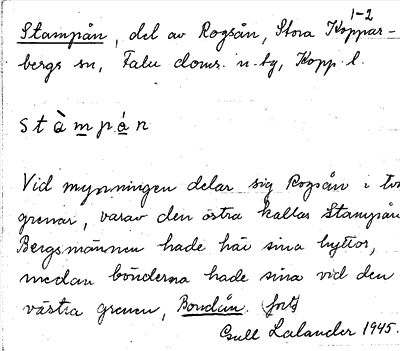 1-2
Stampån, del av Rogsån, Stora Koppar-
bergs sn, Falu doms. n. tg, Kopp l.
stàmpán
Vid mynningen delar sig Rogsån i två
grenar, varav den östra kallas Stampån
Bergsmännen hade här sina hyttor,
medan bönderna hade sina vid den
västra grenen, Bondån. (forts)
Gull Lalander 1945.